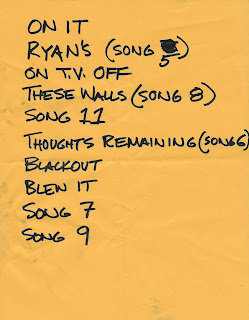 ON IT
RYAN'S (SONG 5)
ON T.V. OFF
THESE WALLS (SONG 8)
SONG 11
THOUGHTS REMAINING (SONG 6)
BLACKOUT
BLEN IT
SONG 7
SONG 9